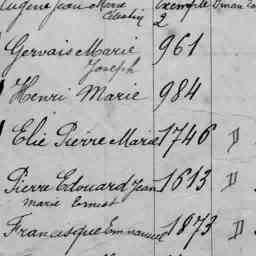 Eugène Jean Marie exempté
Célestin 2
Gervais Marie 961
Joseph
Henri Marie 984
Elie Pierre Marie 1746 D
Pierre Edouard Jean 1613 D
marie Ernest
Francisque Emmanuel 1873 D